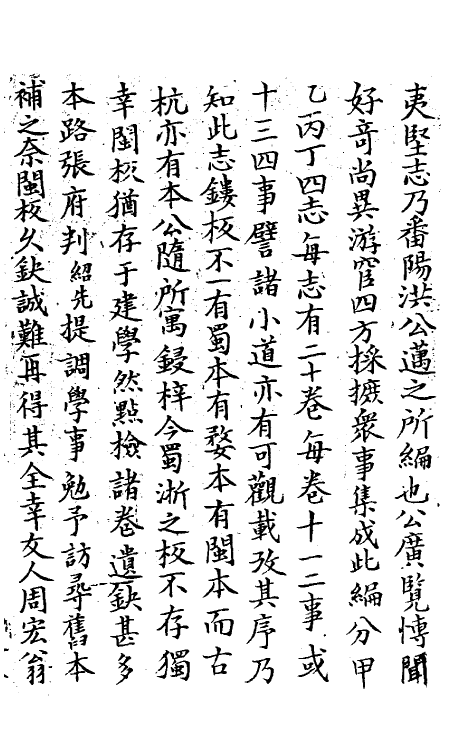 夷堅志乃番陽洪公邁之所編也公廣覽博聞
好竒尚異游宦四方採摭衆事集成此編分甲
乙丙丁四志每志有二十卷每卷十一二事或
十三四事譬諸小道亦有可觀載攷其序乃
知此志鏤板不一有蜀本有婺本有閩本而古
杭亦有本公隨所寓鋟梓今蜀浙之板不存獨
幸閩板猶存于建學然點檢諸卷遺缺甚多
本路張府判紹先提調學事勉予訪尋舊本
補之奈閩板久缺誠難再得其全幸友人周宏翁